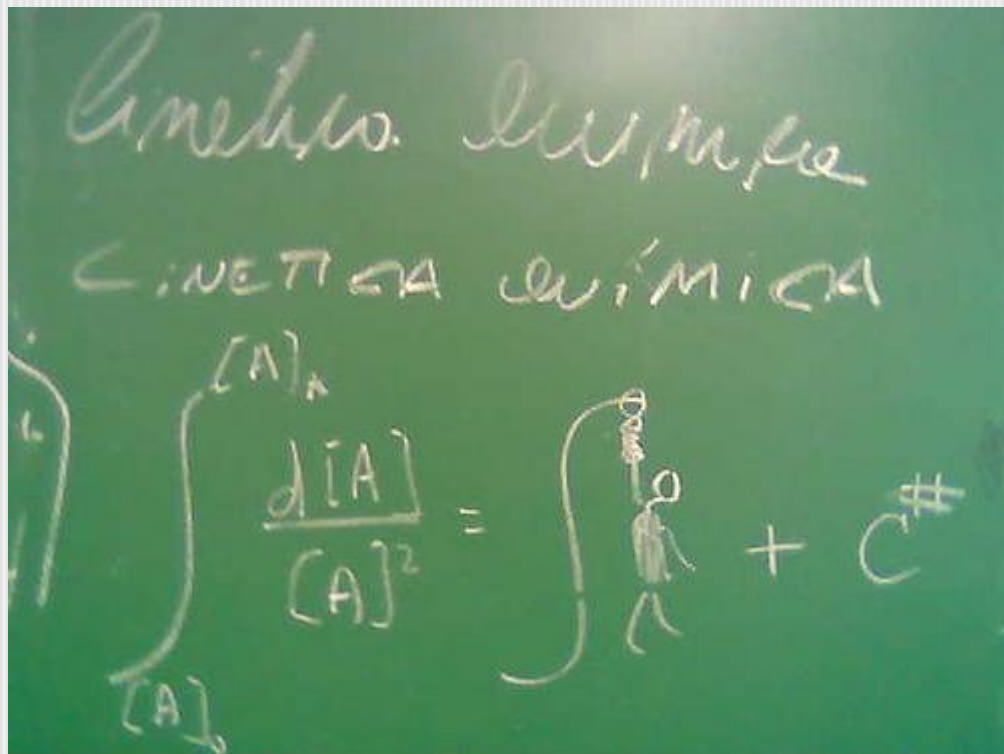 Cinética Química
CINETICA QUÍMICA
[A]
d[A]
= ∫ + C#
[A]²
[A]₀